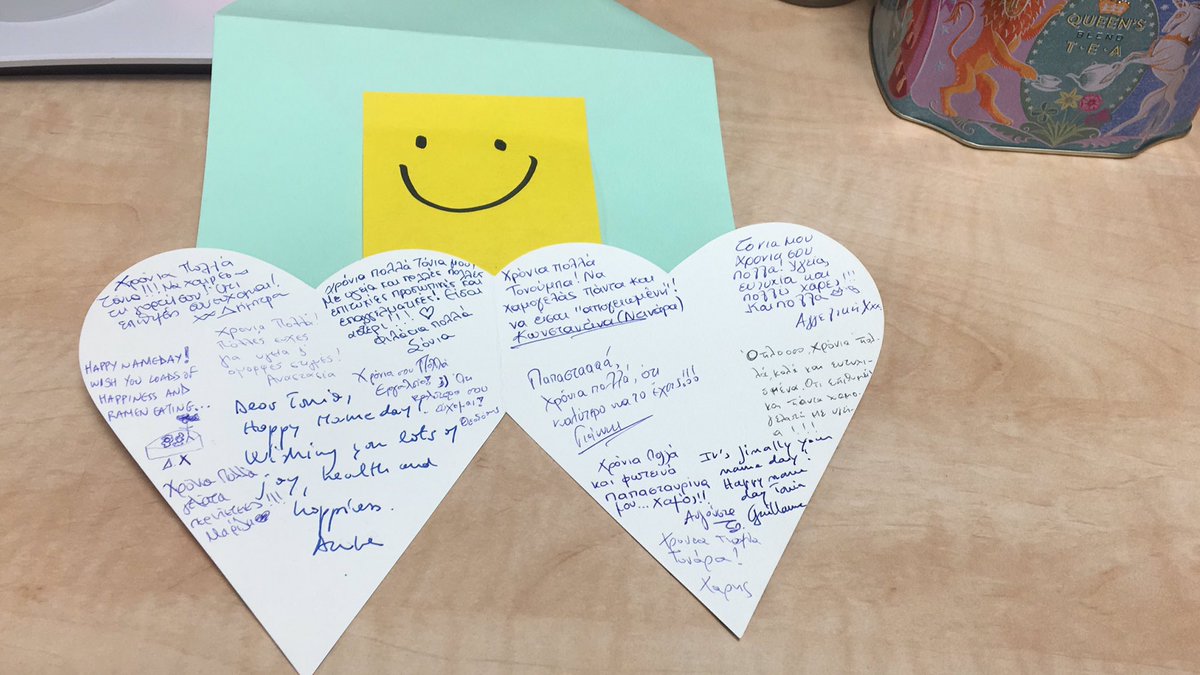 QUEEN'S
BLEND
T·E·A
Χρόνια Πολλά
Τόνια!!! Να χαίρεσαι
τη γιορτή σου! Ότι
επιθυμείς σου εύχομαι!
Δήμητρα
Χρόνια Πολλά!
Πολλές ευχές
για υγεία &
όμορφες στιγμές!
Αναστασία
HAPPY NAMEDAY!
WISH YOU LOADS OF
HAPPINESS AND
RAMEN EATING...
Δ.Χ
Χρόνια Πολλά
γεμάτα
Μαρίλια
Χρόνια πολλά Τόνια μου!
Με υγεία και πολλές πολλές
επιτυχίες προσωπικές και
επαγγελματικές! Είσαι
αστέρι!!!! ♡
Φιλάκια πολλά
Σόνια
Χρόνια σου Πολλά
Εργαλείο!! :) Ότι
καλύτερο σου
εύχομαι!
Dear Tonia,
Happy Name day!
Wishing you lots of
joy, health and
happiness.
Χρόνια πολλά
Τονούμπα! Να
χαμογελάς πάντα και
να είσαι "απογειωμένη"!
Κωνσταντίνα (Νανάρα)
Παπασταααά,
Χρόνια πολλά, ότι
καλύτερο να το έχεις!!!
Γιάννης
Χρόνια Πολλά
και φωτεινά
Παπασταυρίνα
μου... Χαμός!!!
Αυγούστα
Χρόνια Πολλά
Τονάρα!
Χάρης
Τόνια μου
Χρόνια σου
πολλά! Υγεία,
ευτυχία και
πολλές χαρές!!!
Φιλιά πολλά
Αγγελική
Χρόνια πολ-
λά, καλά και ευτυχι-
σμένα. Ότι επιθυμείς
και πάντα χαμο-
It's finally your
name day!
Happy name
day Tonia
Guillaume